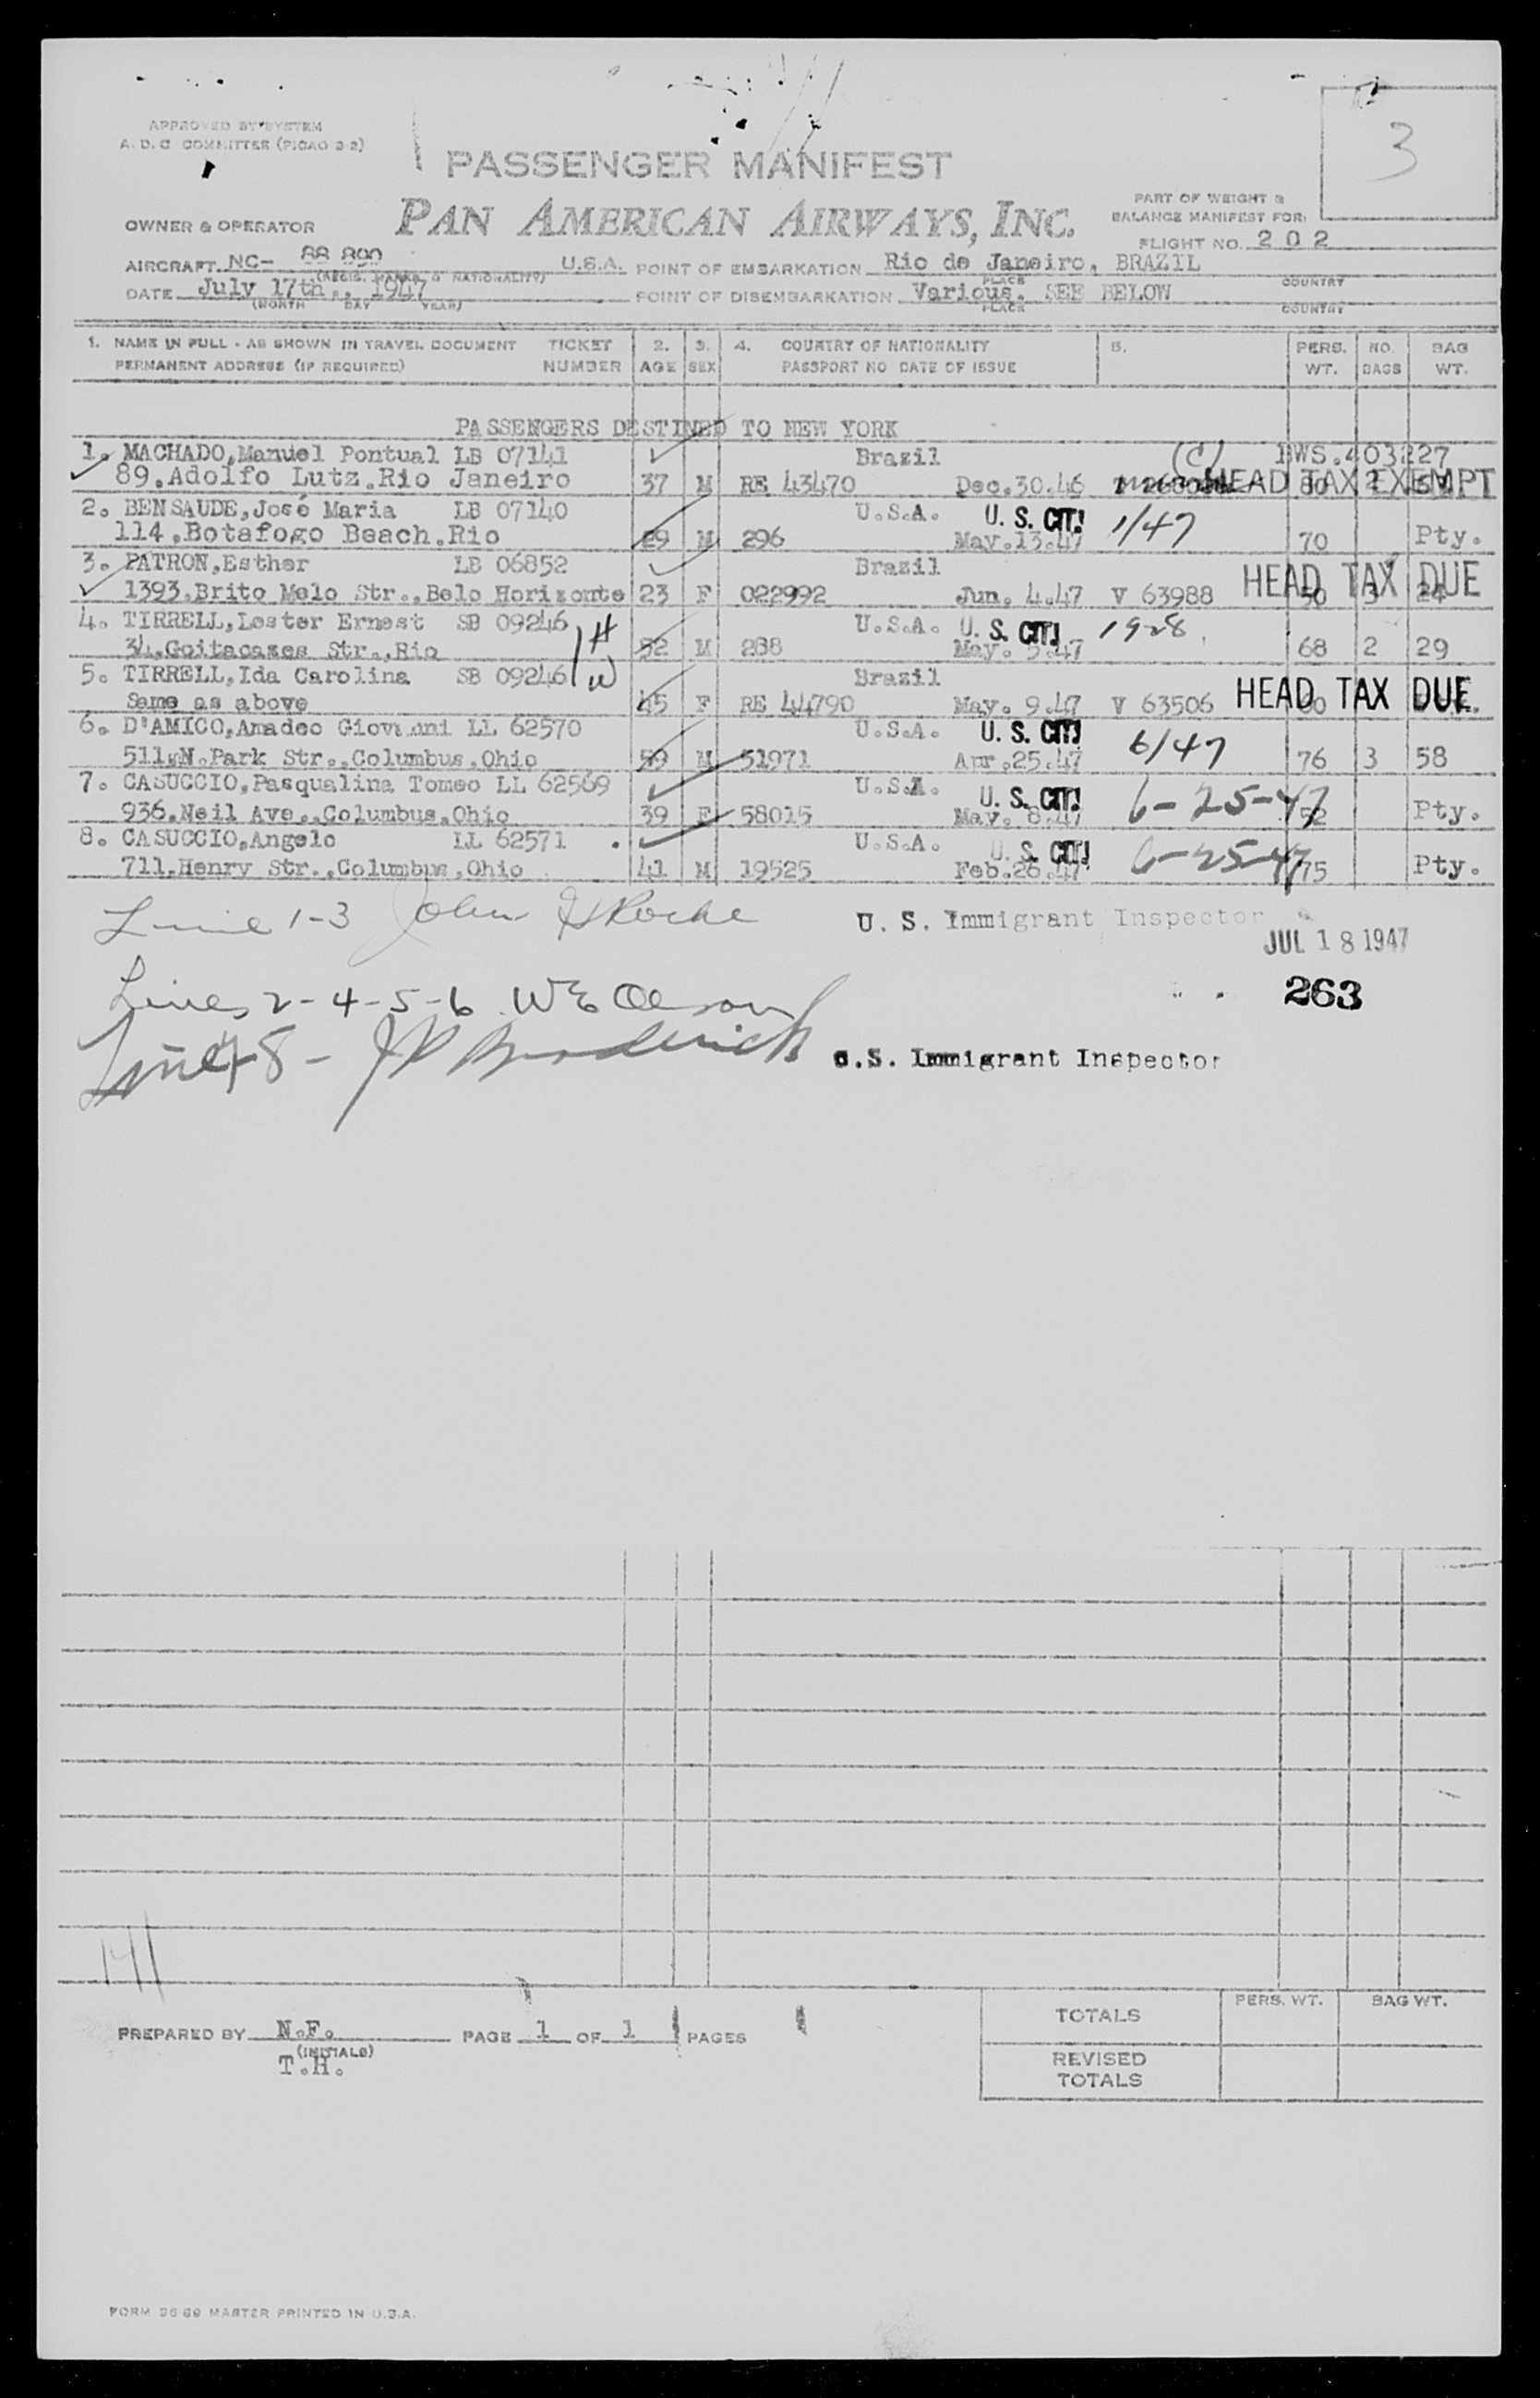 APPROVED BY SYSTEM
A. D. C COMMITTEE (PICAO 3-2)
3
PASSENGER MANIFEST
PAN AMERICAN AIRWAYS, INC.
PART OF WEIGHT &
BALANCE MANIFEST FOR:
OWNER & OPERATOR
FLIGHT NO. 202
AIRCRAFT NC- U.S.A. POINT OF EMBARKATION Rio de Janeiro, BRAZIL
(REGIS. MARKS & NATIONALITY) PLACE COUNTRY
DATE July 17th., 1947 POINT OF DISEMBARKATION Various. SEE BELOW
(MONTH DAY YEAR) PLACE COUNTRY
1. NAME IN FULL - AS SHOWN IN TRAVEL DOCUMENT TICKET 2. 3. 4. COUNTRY OF NATIONALITY 5. PERS. NO. BAG
PERMANENT ADDRESS (IF REQUIRED) NUMBER AGE SEX PASSPORT NO DATE OF ISSUE WT. BAGS WT.
PASSENGERS DESTINED TO NEW YORK
1. MACHADO,Manuel Pontual LB 07141 Brazil (C) BWS.403227
89.Adolfo Lutz.Rio Janeiro 37 M RE 43470 Dec.30.46 HEAD TAX EXEMPT 80 2
2. BENSAUDE,José Maria LB 07140 U.S.A. U. S. CIT!
114.Botafogo Beach.Rio 29 M 296 May.13.47 1/47 70 Pty.
3. PATRON,Esther LB 06852 Brazil
1393.Brito Melo Str.,Belo Horizonte 23 F 022992 Jun. 4.47 V 63988 HEAD TAX DUE 50 3 24
4. TIRRELL,Lester Ernest SB 09246 H U.S.A. U. S. CIT! 1928
34.Goitacazes Str.,Rio 52 M 288 May. 5.47 68 2 29
5. TIRRELL,Ida Carolina SB 09246 W Brazil
Same as above 45 F RE 44790 May. 9.47 V 63506 HEAD TAX DUE
6. D'AMICO,Amadeo Giovanni LL 62570 U.S.A. U. S. CIT!
511,N.Park Str.,Columbus,Ohio 59 M 51971 Apr.25.47 6/47 76 3 58
7. CASUCCIO,Pasqualina Tomeo LL 62569 U.S.A. U. S. CIT!
936.Neil Ave.,Columbus,Ohio 39 F 58015 May. 8.47 6-25-47 52 Pty.
8. CASUCCIO,Angelo LL 62571 U.S.A. U. S. CIT!
711.Henry Str.,Columbus,Ohio 41 M 19525 Feb.26.47 6-25-47 75 Pty.
Line 1-3 John Roche U. S. Immigrant Inspector
JUL 18 1947
Lines 2-4-5-6 W E Oleson " " 263
Line 7-8 - J P Broderick U.S. Immigrant Inspector
PREPARED BY N.F. PAGE 1 OF 1 PAGES
(INITIALS)
T.H.
TOTALS PERS. WT. BAG WT.
REVISED
TOTALS
FORM 3669 MASTER PRINTED IN U.S.A.